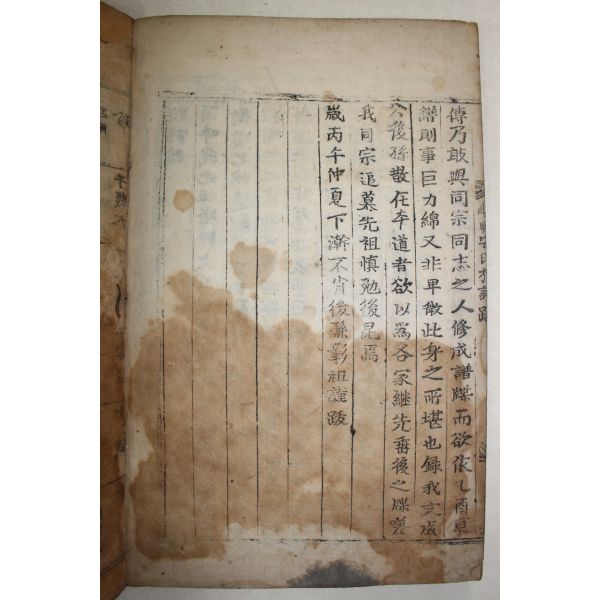 傳乃敢與同宗同志之人修成譜牒而欲依乙酉京
譜則事巨力綿又非卑微此身之所堪也錄我文成
公後孫散在本道者欲以爲各家継先垂後之牒嗟
我同宗追慕先祖愼勉後昆焉
歲丙午仲夏下澣不肖後孫彰祖謹跋